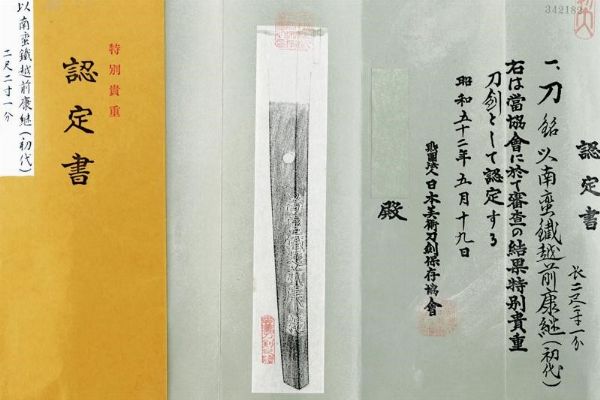 342182
認定書
一、刀 銘 以南蛮鐵越前康継(初代)
長二尺二寸一分
右は當協會に於て審査の結果特別貴重
刀剣として認定する
昭和五十二年五月十九日
財團法人日本美術刀剣保存協會
殿
南蛮鐵越前康継
特別貴重
認定書
以南蛮鐵越前康継(初代)
二尺二寸一分